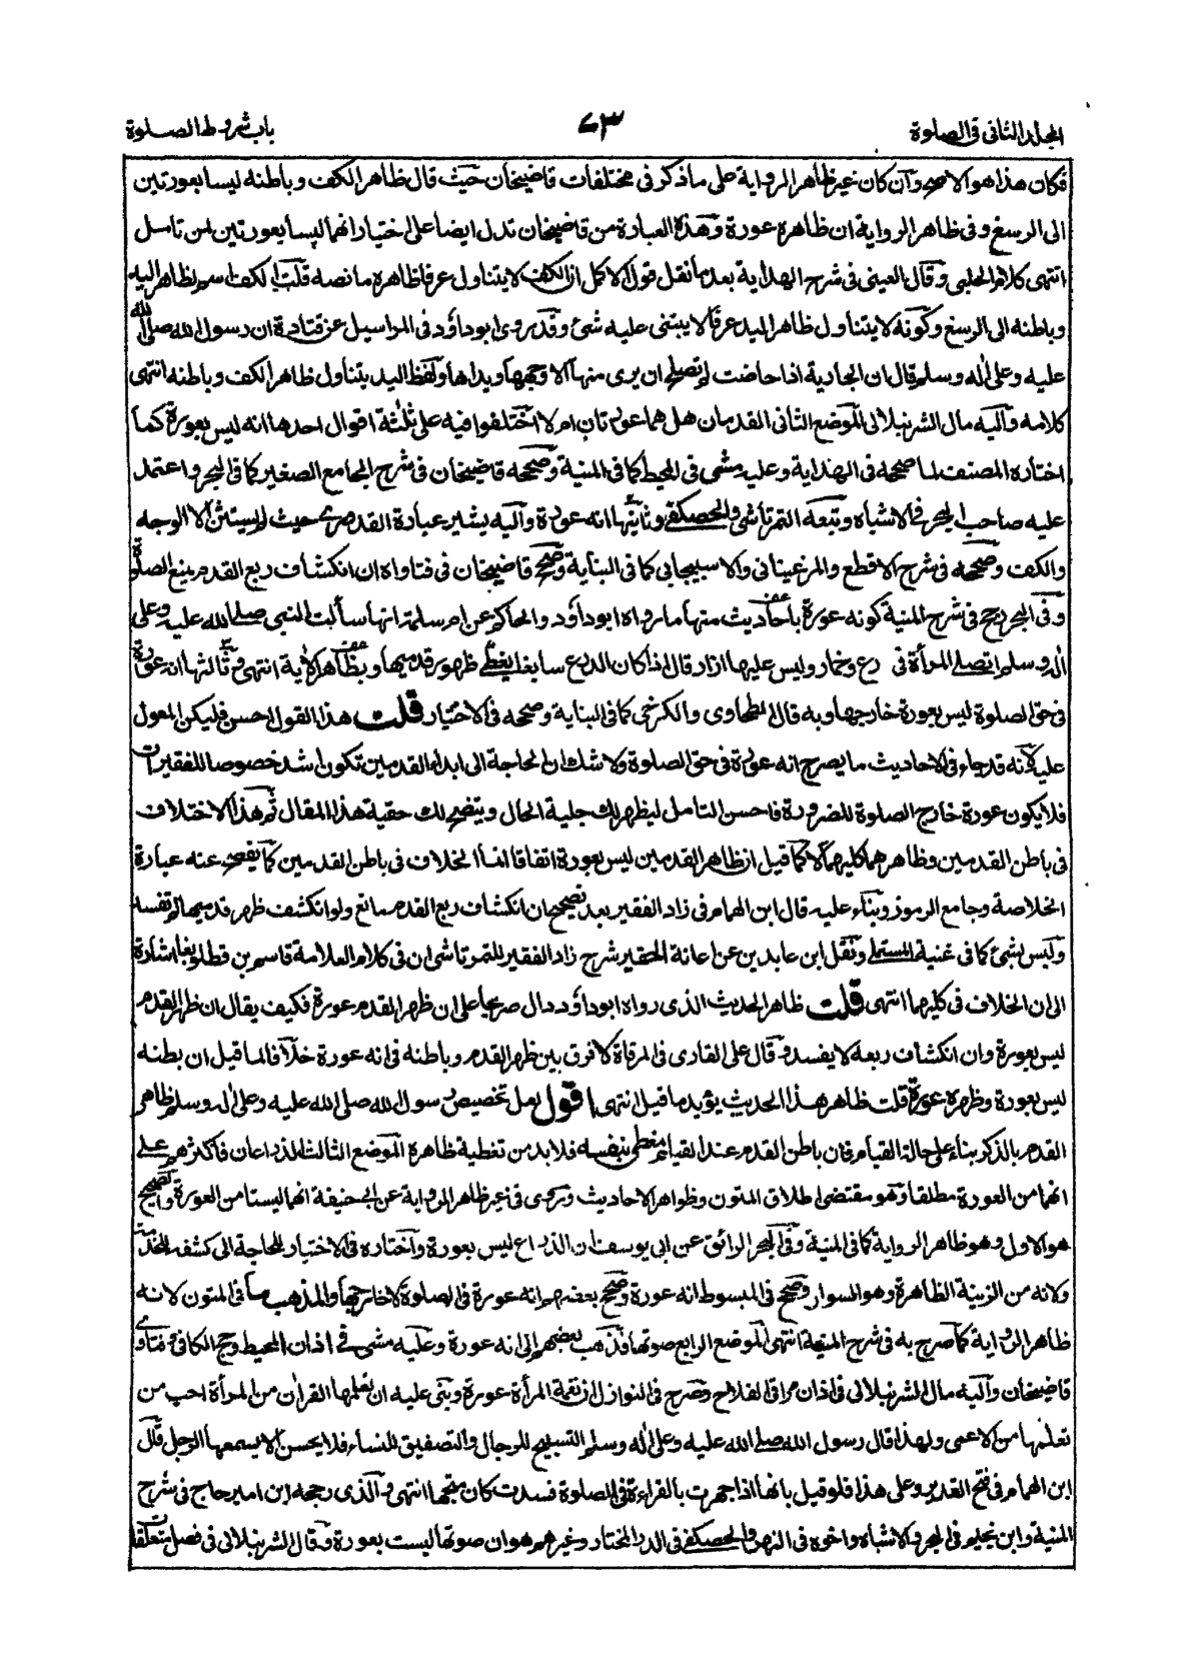 المجلد الثانی فی الصلوة
٧٣
باب شروط الصلوة
فکان هذا هو الاصح وآن کان غیر ظاهر الروایة علی ما ذکر فی مختلفات قاضیخان حیث قال ظاهر الکف و باطنه لیسا بعورتین
الی الرسغ و فی ظاهر الروایة ان ظاهره عورة وهذه العبارة من قاضیخان تدل ایضا علی اختیار انهما لیسا بعورتین لمن تامل
انتهی کلام الحلبی وقال العینی فی شرح الهدایة بعد ما نقل قول الاکمل ان الکف لا یتناول عرفا ظاهره ما نصه قلت الکف اسم لظاهر الید
وباطنه الی الرسغ وکونه لا یتناول ظاهر الید عرفا لا یبتنی علیه شئ وقد روی ابوداؤد فی المراسیل عن قتادة ان رسول الله صلی الله
علیه وعلی اٰله وسلم قال ان الجاریة اذا حاضت لم تصلح ان یری منها الا وجهها ویداها ولفظ الید یتناول ظاهر الکف وباطنه انتهی
کلامه وآلیه مال الشرنبلالی الموضع الثانی القدمان هل هما عورتان ام لا اختلفوا فیه علی ثلٰثة اقوال احدها انه لیس بعورة کما
اختاره المصنف لما صححه فی الهدایة وعلیه مشی فی المحیط کما فی المنیة وصححه قاضیخان فی شرح الجامع الصغیر کما فی البحر واعتمد
علیه صاحب البحر فی الاشباه وتبعه التمرتاشی والحصکفی وثانیها انه عورة وآلیه یشیر عبارة القدوری حیث لم یستثن الا الوجه
والکف وصححه فی شرح الاقطع والمرغینانی والاسبیجابی کما فی البنایة وصحح قاضیخان فی فتاواه ان انکشاف ربع القدم یمنع الصلوة
وفی البحر رجح فی شرح المنیة کونه عورة باحادیث منها ما رواه ابوداؤد والحاکم عن ام سلمة انها سألت النبی صلی الله علیه وعلی
اٰله وسلم اتصلی المرأة فی درع وخمار ولیس علیها ازار قال اذا کان الدرع سابغا یغطی ظهور قدمیها وبظاهر الاٰیة انتهی وثالثها انه عورة
فی حق الصلوة لیس بعورة خارجها وبه قال الطحاوی والکرخی کما فی البنایة وصححه فی الاختیار قلت هذا القول احسن فلیکن المعول
علیه لانه قد جاء فی الاحادیث ما یصرح انه عورة فی حق الصلوة ولا شك ان الحاجة الی ابداء القدمین تکون اشد خصوصا للفقیرات
فلا یکون عورة خارج الصلوة للضرورة فاحسن التامل لیظهر لك جلیة الحال ویتضح لك حقیة هذا المقال ثم هذا الاختلاف
فی باطن القدمین وظاهرهما کلیهما لا کما قیل ان ظاهر القدمین لیس بعورة اتفاقا انما الخلاف فی باطن القدمین کما یفصح عنه عبارة
الخلاصة وجامع الرموز وبناء علیه قال ابن الهمام فی زاد الفقیر بعد تصحیح ان انکشاف ربع القدم مانع ولو انکشف ظهر قدمیها لم تفسد
ولیس بشئ کما فی غنیة المستملی ونقل ابن عابدین عن اعانة الحقیر شرح زاد الفقیر للتمرتاشی ان فی کلام العلامة قاسم بن قطلوبغا اشارة
الی ان الخلاف فی کلیهما انتهی قلت ظاهر الحدیث الذی رواه ابوداؤد دال صریحا علی ان ظهر القدم عورة فکیف یقال ان ظهر القدم
لیس بعورة وان انکشاف ربعه لا یفسد وقال علی القاری فی المرقاة لا فرق بین ظهر القدم وباطنه فی انه عورة خلافا لما قیل ان بطنه
لیس بعورة وظهره عورة قلت ظاهر هذا الحدیث یؤید ما قیل انتهی اقول لعل تخصیص رسول الله صلی الله علیه وعلی اٰله وسلم ظاهر
القدم بالذکر بناء علی حالة القیام فان باطن القدم عند القیام مغطی بنفسه فلا بد من تغطیة ظاهره الموضع الثالث الذراعان فاکثرهم علی
انهما من العورة مطلقا وهو مقتضی اطلاق المتون وظواهر الاحادیث وروی فی غیر ظاهر الروایة عن ابی حنیفة انهما لیستا من العورة والصحیح
هو الاول وهو ظاهر الروایة کما فی المنیة وفی البحر الرائق عن ابی یوسف ان الذراع لیس بعورة واختاره فی الاختیار للحاجة الی کشفه للخدمة
ولانه من الزینة الظاهرة وهو السوار وصحح فی المبسوط انه عورة وصحح بعضهم انه عورة فی الصلوة لا خارجها والمذهب ما فی المتون لانه
ظاهر الروایة کما صرح به فی شرح المنیة انتهی الموضع الرابع صوتها فذهب بعضهم الی انه عورة وعلیه مشی فی اذان المحیط ورجح الکافی وفتاوی
قاضیخان وآلیه مال الشرنبلالی فی اذان مراقی الفلاح وصرح فی النوازل ان نغمة المرأة عورة وبنی علیه ان تعلمها القراٰن من المرأة احب من
تعلمها من الاعمی ولهذا قال رسول الله صلی الله علیه وعلی اٰله وسلم التسبیح للرجال والتصفیق للنساء فلا یحسن ان یسمعها الرجل قال
ابن الهمام فی فتح القدیر وعلی هذا فلو قیل بانها اذا جهرت بالقراءة فی الصلوة فسدت کان متجها انتهی والذی رجحه ابن امیر حاج فی شرح
المنیة وابن نجیم فی البحر والاشباه واخوه فی النهر والحصکفی فی الدر المختار وغیرهم هو ان صوتها لیست بعورة وقال الشرنبلالی فی فصل متعلقات